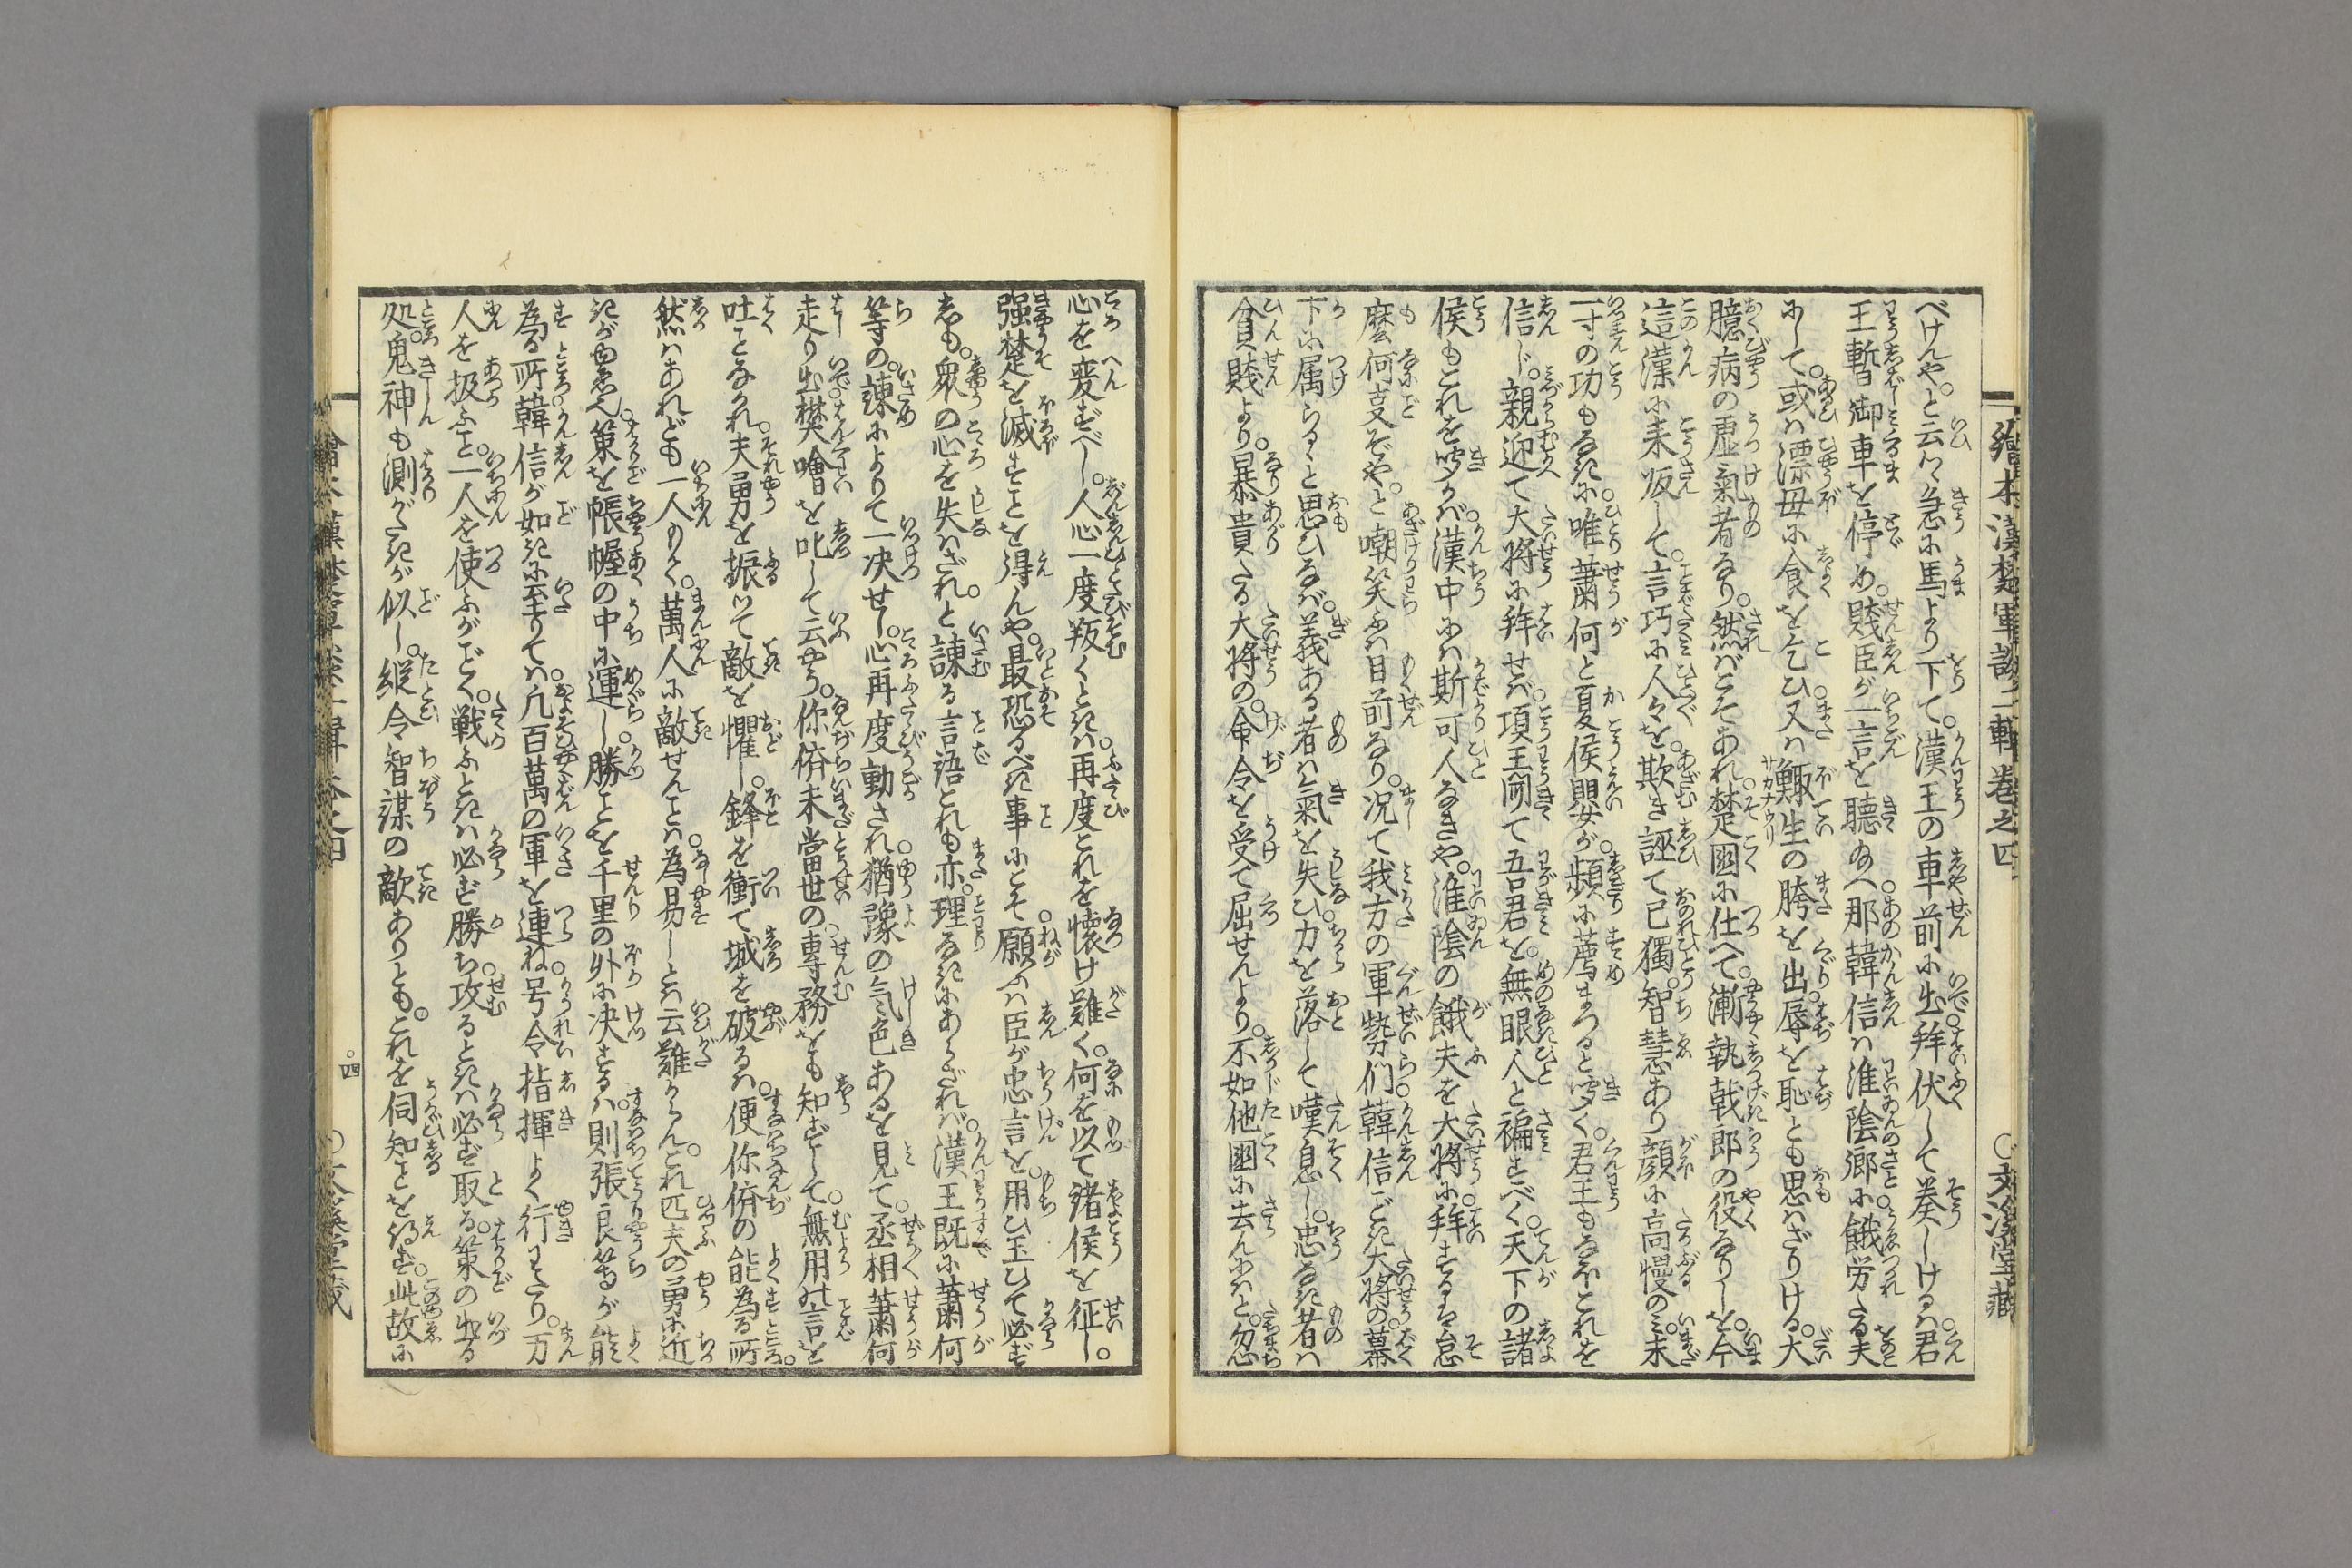 繪本漢楚軍談二輯巻之四
○文溪堂藏
べけんや。と云つゝ急に馬より下て。漢王の車前に出。拜伏して奏しけるは。君
王暫御車を停め。賤臣が一言を聽玉へ。那韓信は淮陰郷に餓労たる夫
にして。或は漂母に食を乞ひ。又は鯫生の胯を出。辱を恥とも思はざりける。大
臆病の虚氣者なり。然ばこそあれ。楚國に仕へて。漸執戟郎の役なりしを。今
這漢に来皈して。言巧に人々を。欺き誣て已獨。智慧あり顔に高慢のミ。未
一寸の功もなきに。唯蕭何と夏侯嬰が。頻に薦まつると聞く。君王もなほこれを
信じ。親迎て大將に拜せば。項王聞て吾君を。無眼人と褊すべく。天下の諸
侯もこれを聞かば。漢中には斯可人なきや。淮陰の餓夫を大將に。拜するは怠
麼何事ぞや。と嘲笑ふは目前なり。况て我方の軍勢们。韓信ごとき大將の。幕
下に属らると思ひなば。義ある者は氣を失ひ。力を落して嘆息し。忠なき者は
貧賤より。暴貴たる大將の。命令を受て屈せんより。不如他國に去んにはと。忽
心を変ずべし。人心一度叛くときは。再度これを懐け難く。何を以て諸侯を征し。
强楚を滅すことを得んや。最恐るべき事にこそ。願ふは臣が忠言を。用ひ玉ひて必ず
しも。衆の心を失はざれ。と諫る言語これも亦。理なきにあらざれば。漢王既に蕭何
等の。諫によりて一决せし。心再度動され。猶豫の気色あるを見て。丞相蕭何
走り出。樊噲を叱して云やう。你儕未當世の。專務をも知ずして。無用の言を
吐ことなかれ。夫勇を振つて敵を懼し。鋒を衝て城を破るは。便你儕の能為る所。
然はあれども一人もて。萬人に敵せんとは。為易しとは云難からん。これ匹夫の勇に近
きがゆゑ也。策を帳幄の中に運し。勝ことを千里の外に决するは。則張良等が能
為る所。韓信が如きに至りては。凢百萬の軍を連ね。号令指揮よく行をたり。万
人を扱ふこと。一人を使ふがごとく。戦ふときは必ず勝ち。攻るときは必ず取る。策の出る
処。鬼神も測がたきが似し。縦令智謀の敵ありとも。これを伺知ことを得ず。此故に
四